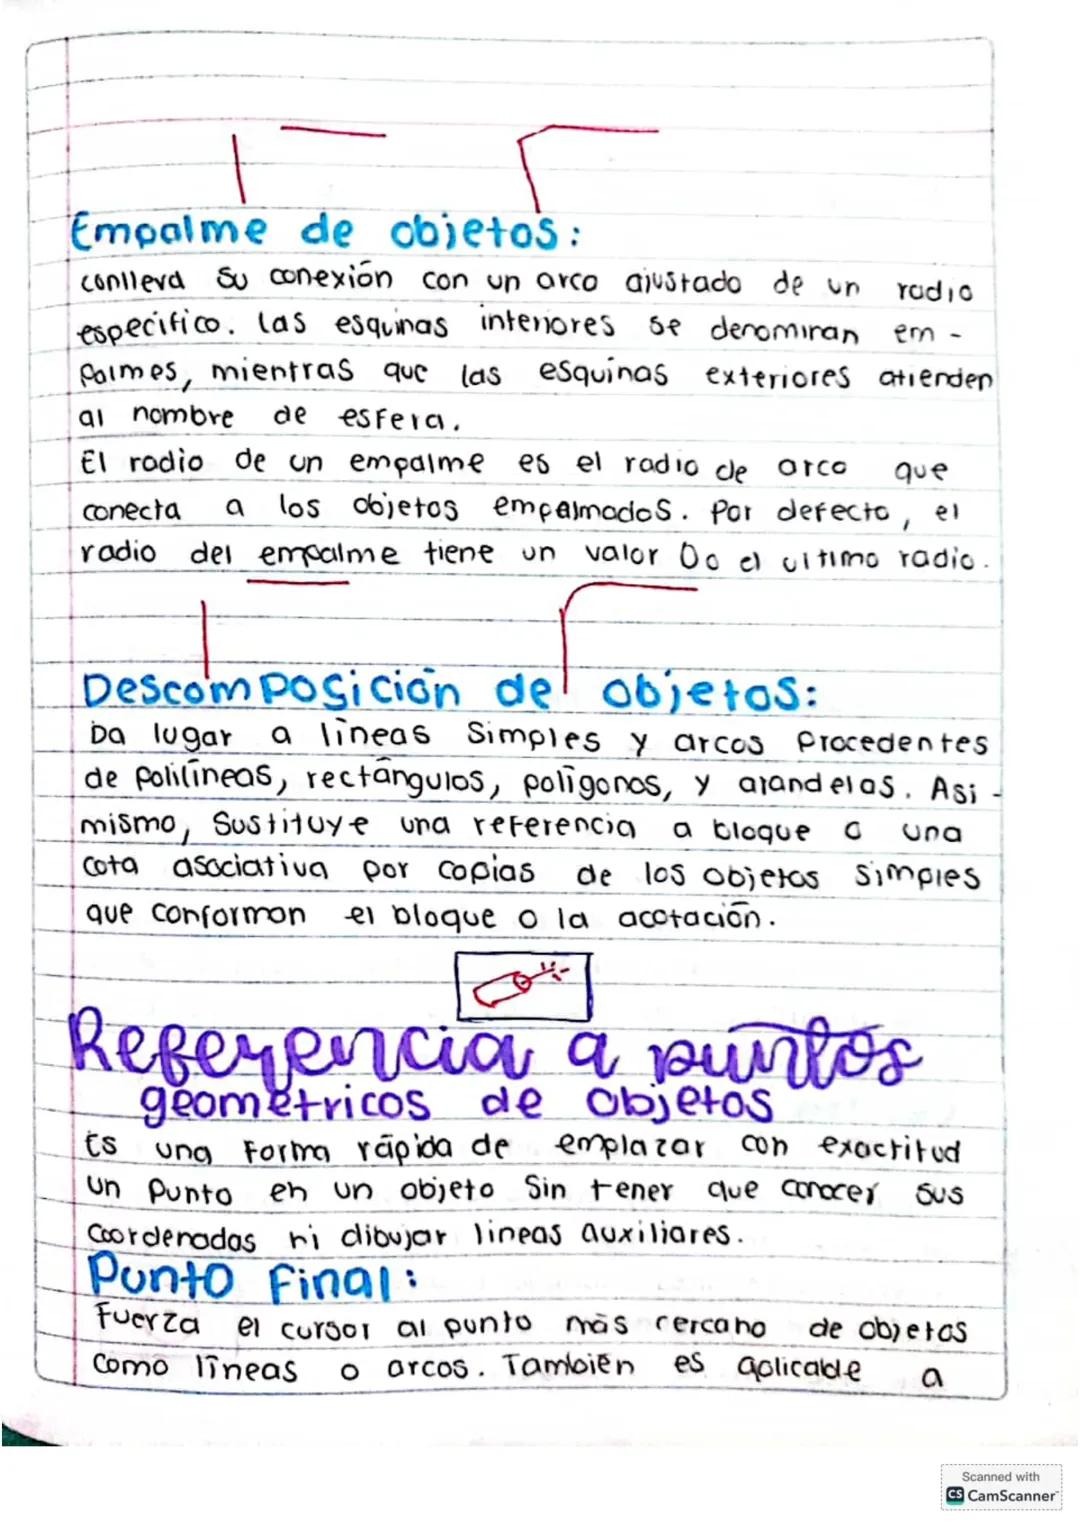 Empalme de objetos:
conlleva su conexión con un arco ajustado de un radio
especifico. las esquinas interiores se denominan em -
palmes, mientras que las esquinas exteriores atienden
al nombre de esfera.
El radio de un empalme es el radio de arco que
conecta a los objetos empalmados. Por defecto, el
radio del empalme tiene un valor 0 o el ultimo radio.
Descomposición de objetos:
Da lugar a líneas Simples y arcos Procedentes
de polilíneas, rectángulos, polígonos, y arandelas. Asi -
mismo, Sustituye una referencia a bloque o una
cota asociativa por copias de los objetos simples
que conforman el bloque o la acotación.
Referencia a puntos
geométricos de objetos
Es una Forma rápida de emplazar con exactitud
un punto en un objeto Sin tener que conocer sus
coordenadas ni dibujar lineas auxiliares.
Punto Final:
Fuerza el cursor al punto más cercano de objetos
como líneas o arcos. También es aplicable a
Scanned with
CS CamScanner